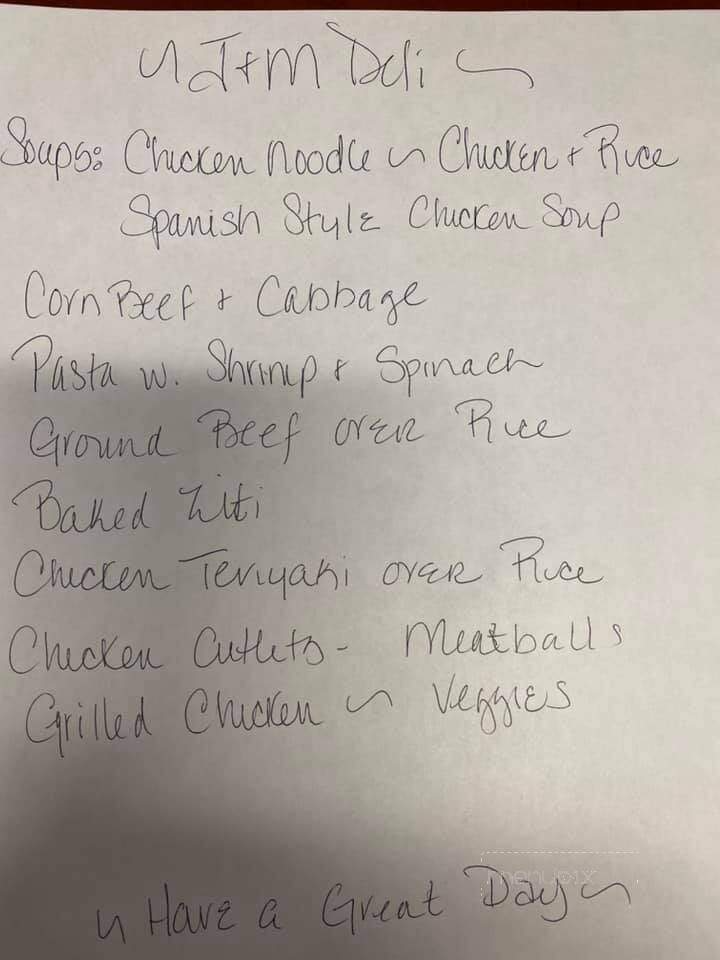 ~ J+M Deli ~
Soups: Chicken Noodle ~ Chicken + Rice
Spanish Style Chicken Soup
Corn Beef + Cabbage
Pasta w. Shrimp + Spinach
Ground Beef over Rice
Baked Ziti
Chicken Teriyaki over Rice
Chicken Cutlets - Meatballs
Grilled Chicken ~ Veggies
menupix
~ Have a Great Day ~